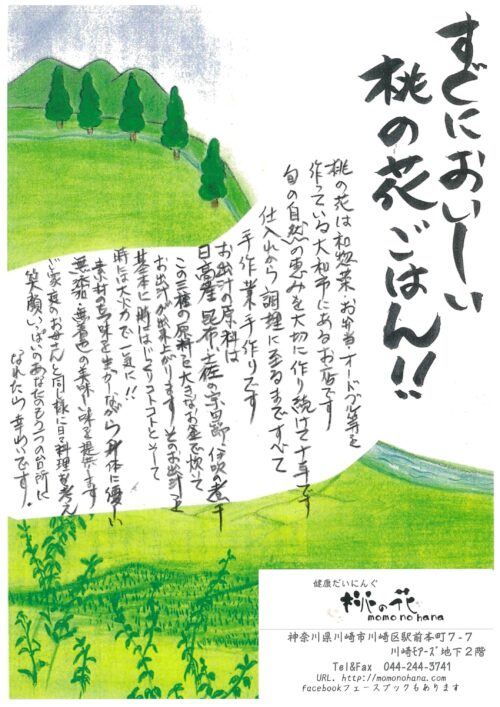 すぐにおいしーい
桃の花ごはん!!
桃の花は和惣菜・お弁当・オードブル等を
作っている大和市にあるお店です
旬の自然の恵みを大切に作り続けて十年です
仕入れから調理に至るまですべて
手作業手作りです
お出汁の原料は
日高産昆布・土佐の宗田節・伊吹の煮干
この三種の原料を大きなお釜で炊いて
お出汁が出来上がります そのお出汁を
基本に時にはじっくりコトコトそして
時には大火力で一気に!!
素材の旨味を生かしながら身体に優しい
無添加・無着色の美味しい味を提供します
ご家庭のお母さんと同じ様に日々料理を考え
笑顔いっぱいのあなたのもう一つの台所に
なれたら幸わいです。
健康だいにんぐ
桃の花
momo no hana
神奈川県川崎市川崎区駅前本町7-7
川崎モアーズ地下2階
Tel&Fax 044-244-3741
URL. http://momonohana.com
facebookフェースブックもあります